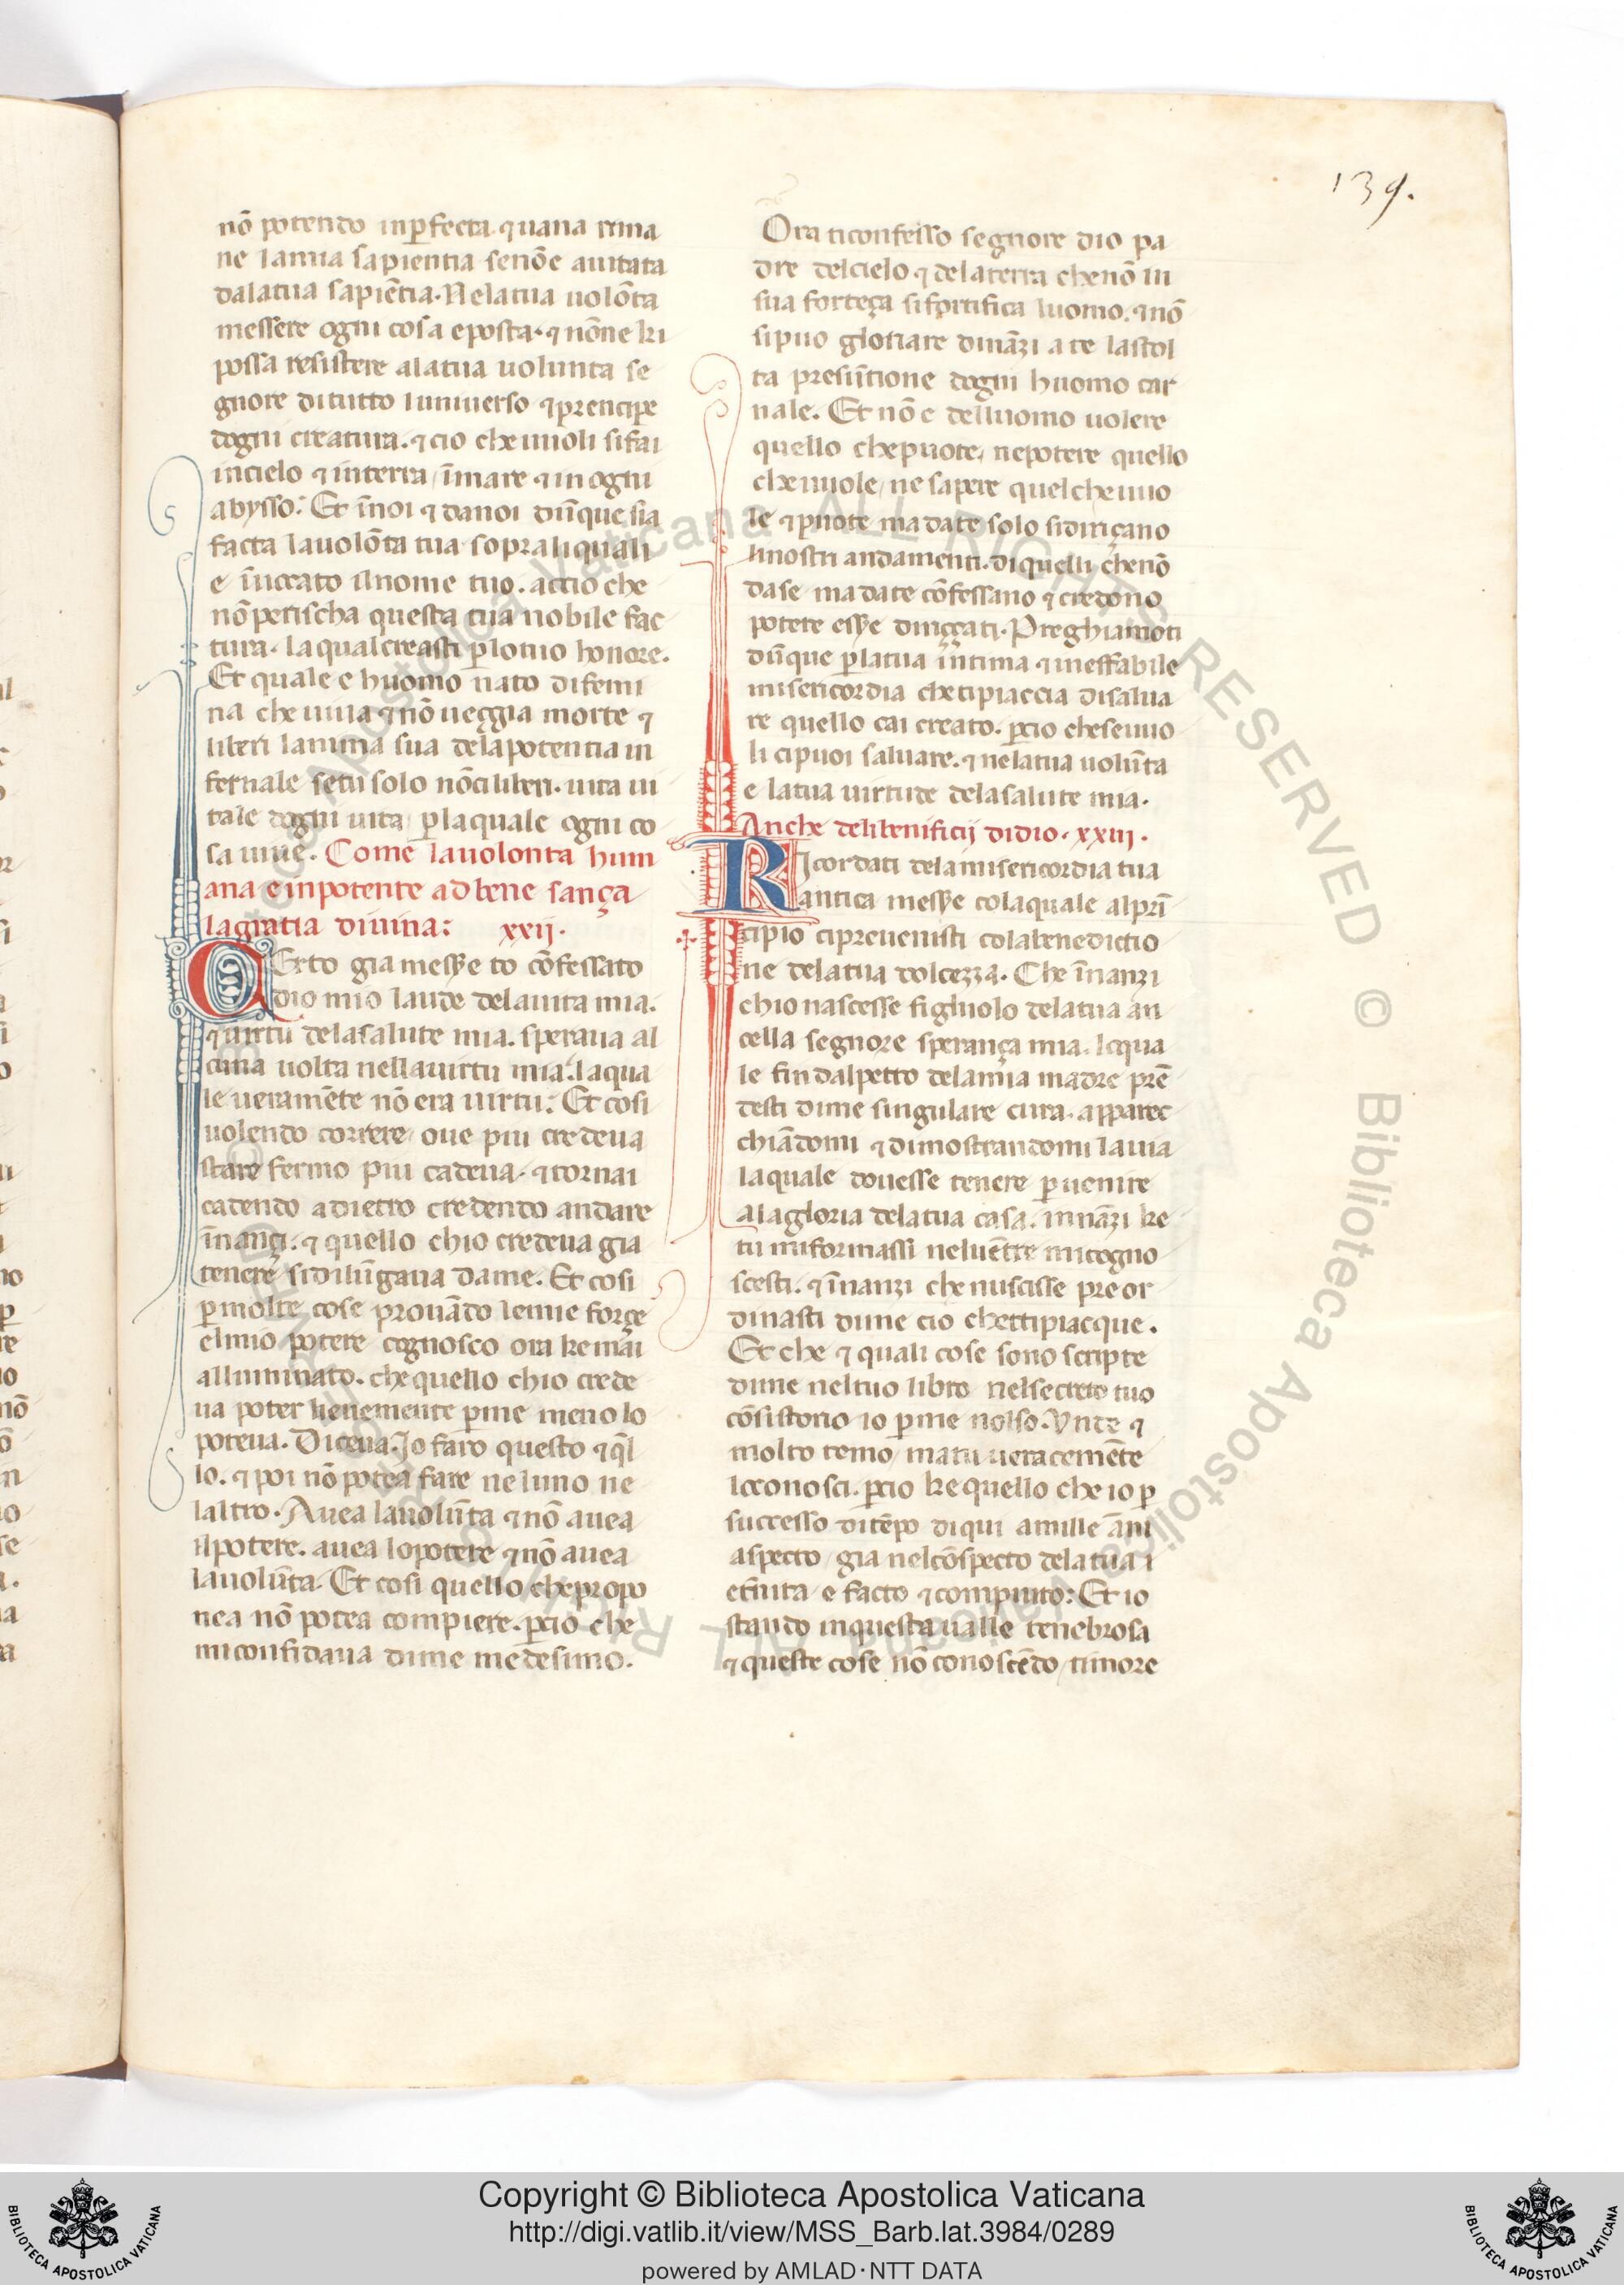 139.
nō potendo inperfecta. ⁊ uana rima
ne la mia sapientia senōe aiutata
dalatua sapiētia. Nelatua uolōta
messere ogni cosa eposta. ⁊ nōne ki
possa resistere alatua uolunta se
gnore ditutto luniuerso ⁊ prencipe
dogni creatura. ⁊ cio cheuuoli sifai
incielo ⁊ interra / īmare ⁊ in ogni
abysso: Et īnoi ⁊ danoi dūque sia
facta lauolōta tua sopraliquali
e īuocato ilnome tuo. accio che
nōperischa questa tua nobile fac
tura. laqualcreasti plotuo honore.
Et quale e huomo nato difemi
na che uiua ⁊ nō ueggia morte ⁊
liberi lanima sua delapotentia in
fernale setu solo nōciliberi. uita ui
tale dogni uita / plaquale ogni co
sa uiue. Come lauolonta hum
ana e inpotente ad bene sança
lagratia diuina: xxij.
CErto gia messe to cōfessato
dio mio laude delauita mia.
⁊ uirtu delasalute mia. speraua al
cuna uolta nellauirtu mia. laqua
le ueramēte nō era uirtu: Et cosi
uolendo correre / oue piu credeua
stare fermo piu cadeua. ⁊ tornai
cadendo adietro credendo andare
īnançi. ⁊ quello chio credeua gia
tenere sidilūgaua dame. Et cosi
p molte cose prouādo lemie forçe
elmio potere cognosco ora kemāi
alluminato. che quello chio crede
ua poter lieuemente pme meno lo
poteua. Diceua. Io faro questo ⁊ q̄l
lo. ⁊ poi nō potea fare ne luno ne
laltro. Auea lauolūta ⁊ nō auea
ilpotere. auea lopotere ⁊ nō auea
lauolūta. Et cosi quello chepropo
nea nō potea compiere. pcio che
miconfidaua dime medesimo.
Ora ticonfesso segnore dio pa
dre delcielo ⁊ delaterra chenō in
sua forteça sifortifica luomo. ⁊ nō
sipuo gloriare dināzi a te lastol
ta presūtione dogni huomo car
nale. Et nō e delluomo uolere
quello chepuote / nepotere quello
cheuuole / ne sapere quelcheuuo
le ⁊ puote ma date solo sidiriçano
linostri andamenti. diquelli chenō
dase ma date cōfessano ⁊ credono
potere esse diriççati. Preghiamoti
dūque platua intima ⁊ ineffabile
misericordia chetipiaccia disalua
re quello cai creato. pcio chesetuuo
li cipuoi saluare. ⁊ nelatua uolūta
e latua uirtude delasalute mia.
Anche delibenificij didio. xxiij.
RIcordati delamisericordia tua
antica messe colaquale alprī
cipio cipreuenisti colabenedictio
ne delatua dolcezza. Che īnanzi
chio nascesse figluolo delatua an
cella segnore sperança mia. lequa
le fin dalpetto delamia madre prē
desti dime singulare cura. apparec
chiādomi ⁊ dimostrandomi lauia
laquale douesse tenere puenire
alagloria delatua casa. innāzi ke
tu miformassi neluētre micogno
scesti. ⁊ īnanzi che nuscisse preor
dinasti dime cio chettipiacque.
Et che ⁊ quali cose sono scripte
dime neltuo libro nelsecreto tuo
cōsistorio io pme nolso. Vnde ⁊
molto temo / matu ueracemēte
leconosci. pcio ke quello che io p
successo ditēpo diqui amille āni
aspecto / gia nelcōspecto delatua i
eternita e facto ⁊ compiuto: Et io
stando inquesta ualle tenebrosa
⁊ queste cose nō conoscēdo / timore
Copyright © Biblioteca Apostolica Vaticana
http://digi.vatlib.it/view/MSS_Barb.lat.3984/0289
powered by AMLAD·NTT DATA
BIBLIOTECA APOSTOLICA VATICANA
BIBLIOTECA APOSTOLICA VATICANA